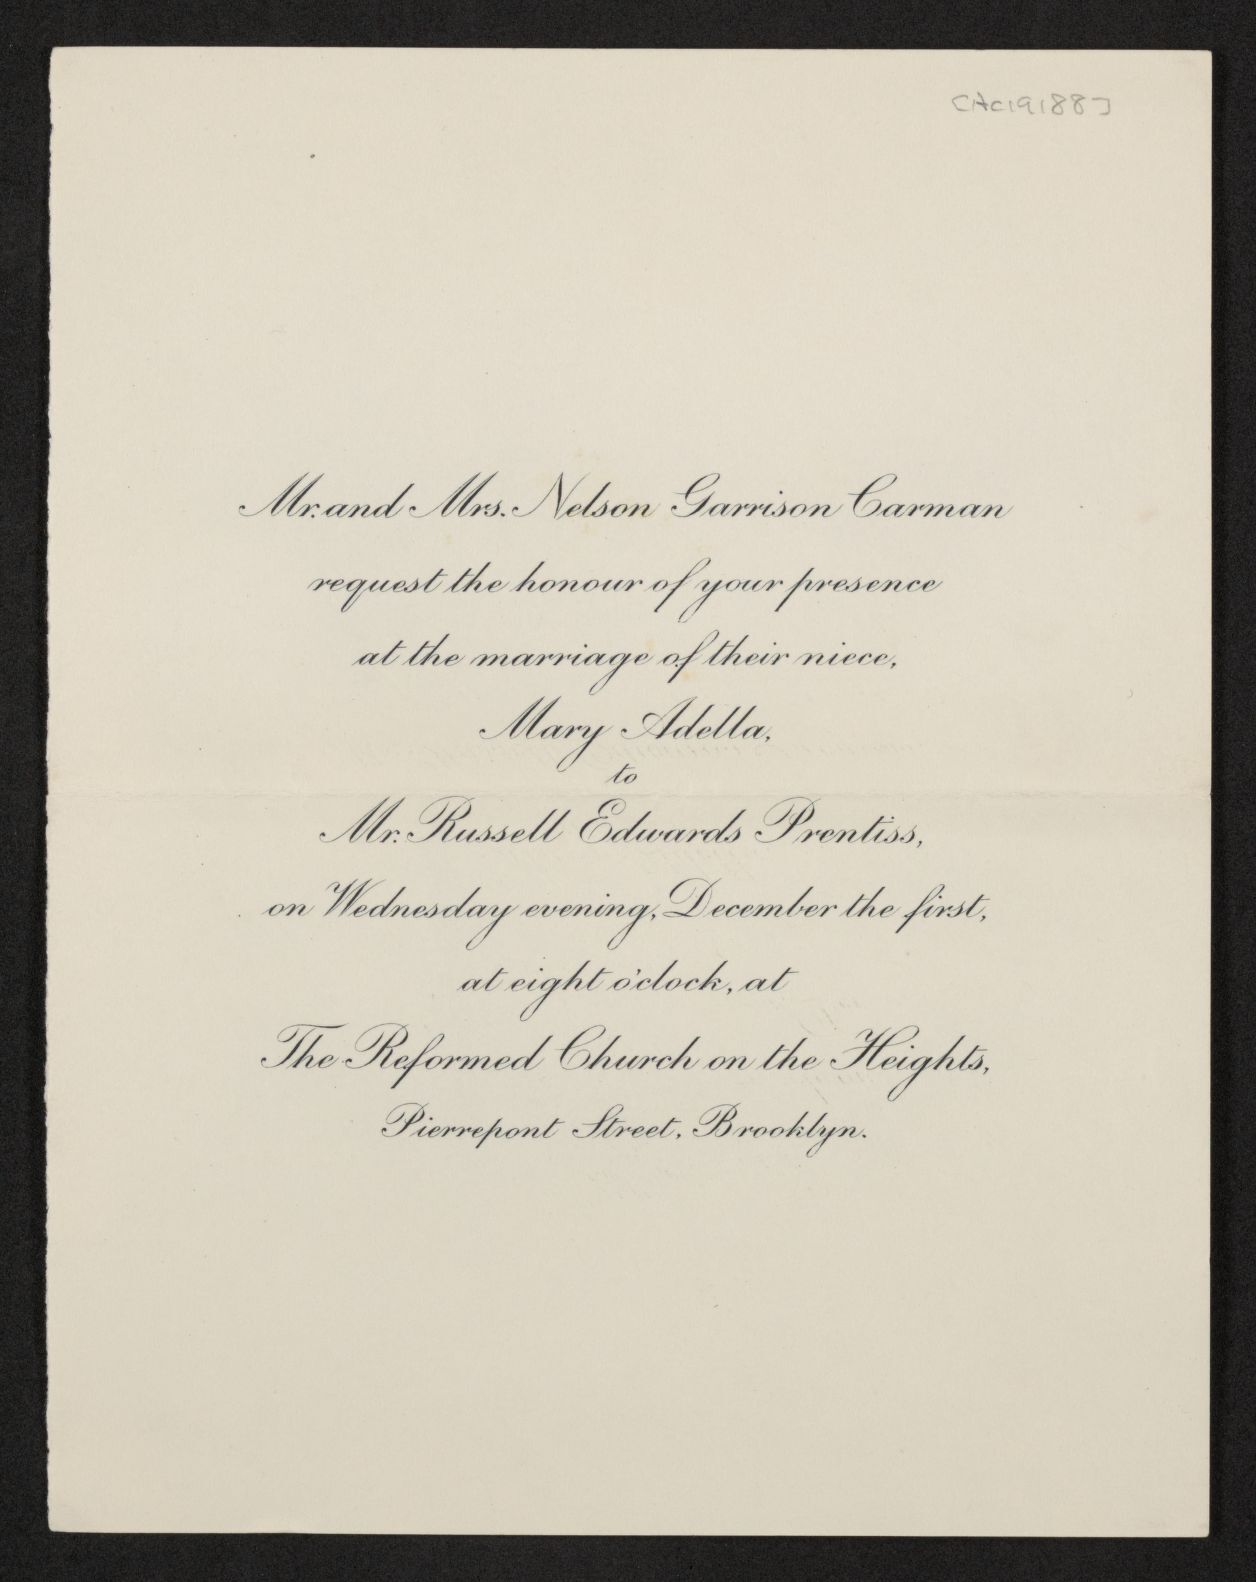 [Ac19188]
Mr. and Mrs. Nelson Garrison Carman
request the honour of your presence
at the marriage of their niece,
Mary Adella,
to
Mr. Russell Edwards Prentiss,
on Wednesday evening, December the first,
at eight o'clock, at
The Reformed Church on the Heights,
Pierrepont Street, Brooklyn.